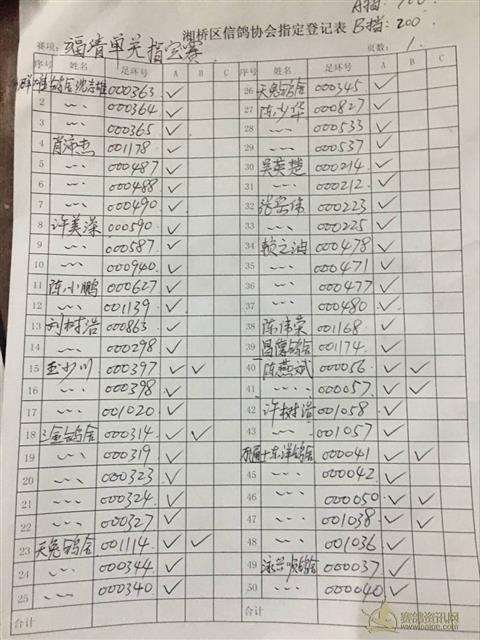 A挡:100.
湘桥区信鸽协会指定登记表 B挡:200
赛项: 福清单关指定赛 页数: 1.
序号 姓名 足环号 A B C 序号 姓名 足环号 A B C
鸽舍沈志雄 000363 ✓ 26 天兔鸽舍 000345 ✓
2 〃 000364 ✓ 27 陈少华 000827 ✓
3 〃 000365 ✓ 28 〃 000533 ✓
4 肖漂杰 001178 ✓ 29 〃 000537 ✓
5 〃 000487 ✓ 30 吴英楚 000214 ✓
6 〃 000488 ✓ 31 〃 000212 ✓
7 〃 000490 ✓ 32 张宏伟 000223 ✓
8 许美深 000590 ✓ 33 〃 000225 ✓
9 〃 000587 ✓ 34 000478 ✓
10 〃 000940 ✓ 35 〃 000471 ✓
11 陈小鹏 000627 ✓ 36 〃 000477 ✓
12 〃 001139 ✓ 37 〃 000480 ✓
13 刘树浩 000863 ✓ 38 陈伟荣 001168 ✓
14 〃 000298 ✓ 39 昌隆鸽舍 001174 ✓
15 000397 ✓ ✓ 40 陈燕斌 000056 ✓ ✓
16 〃 000398 ✓ 41 〃 000057 ✓ ✓
17 〃 001020 ✓ 42 许树浩 001058 ✓
18 三金鸽舍 000314 ✓ ✓ 43 〃 001057 ✓
19 〃 000319 ✓ 东洋鸽舍 000041 ✓ ✓
20 〃 000323 ✓ 45 〃 000042 ✓
21 〃 000324 ✓ 46 〃 000050 ✓ ✓
22 〃 000327 ✓ 47 〃 001038 ✓ ✓
23 天兔鸽舍 001114 ✓ ✓ 48 〃 001036 ✓
24 〃 000344 ✓ 49 鸽舍 000037 ✓
25 〃 000340 ✓ 50 〃 000040 ✓
合计 合计
赛鸽资讯网
www.saige.com